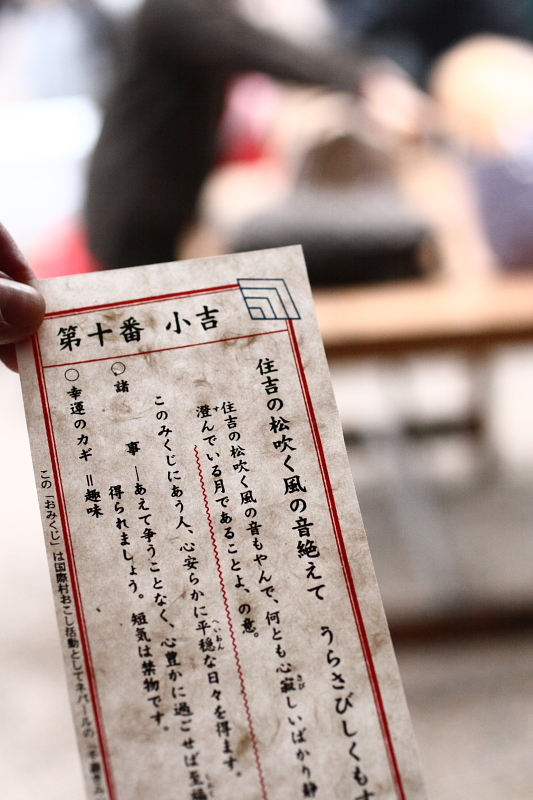 第十番 小吉
住吉の松吹く風の音絶えて うらさびしくもす
住吉の松吹く風の音もやんで、何とも心寂しいばかり静
澄んでいる月であることよ、の意。
このみくじにあう人、心安らかに平穏な日々を得ます。
○諸 事 ―あえて争うことなく、心豊かに過ごせば至福
得られましょう。短気は禁物です。
○幸運のカギ =趣味
この「おみくじ」は国際村おこし活動としてネパールの